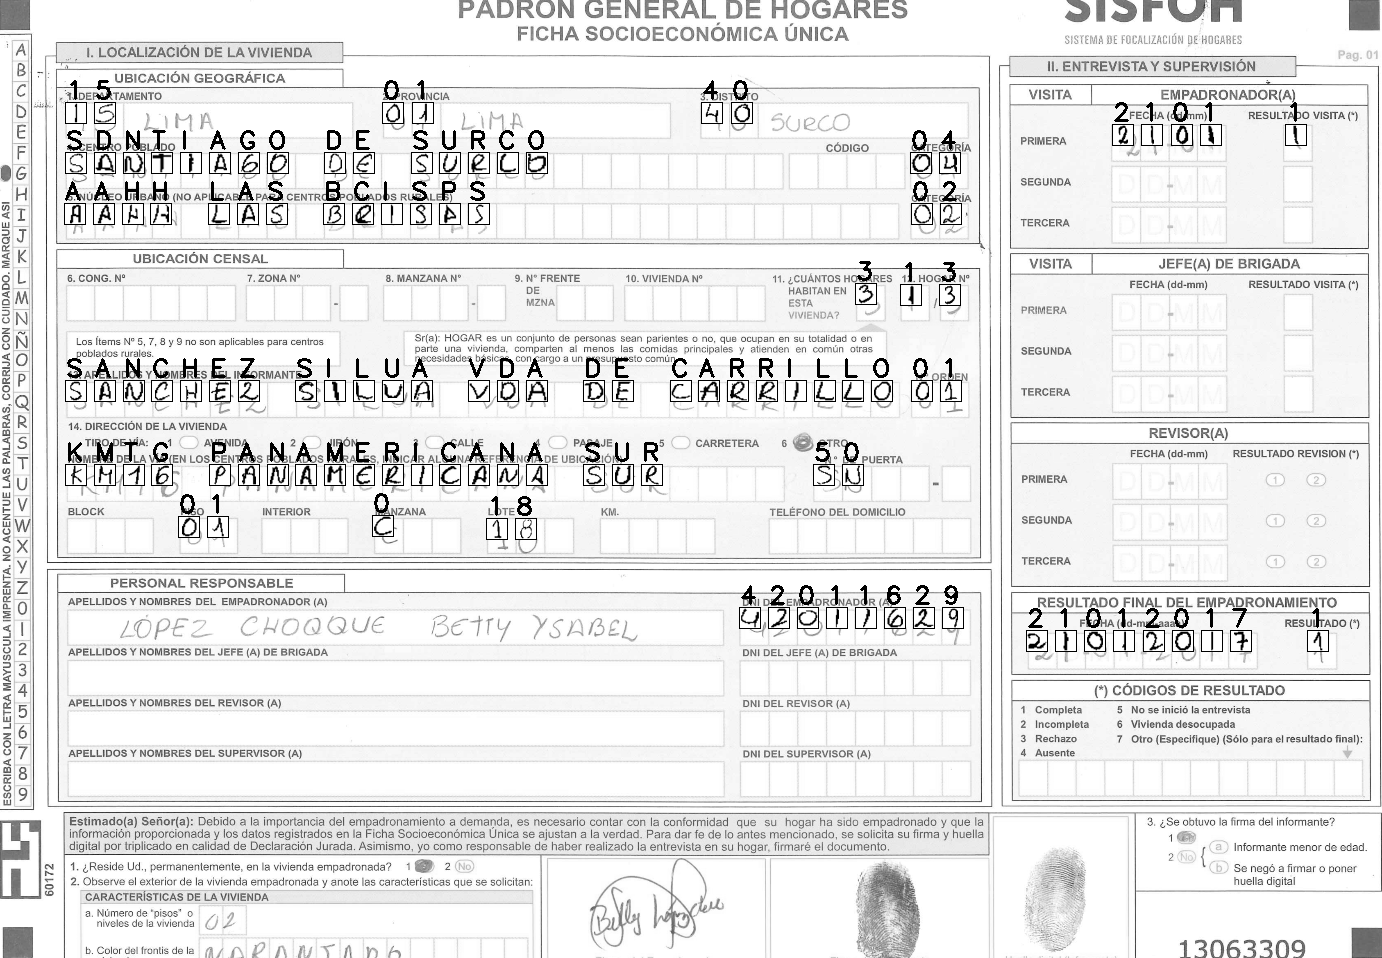 PADRÓN GENERAL DE HOGARES
FICHA SOCIOECONÓMICA ÚNICA
SISFOH
SISTEMA DE FOCALIZACIÓN DE HOGARES
Pag. 01
ESCRIBA CON LETRA MAYUSCULA IMPRENTA. NO ACENTUE LAS PALABRAS, CORRIJA CON CUIDADO. MARQUE ASI
A B C D E F G H I J K L M N Ñ O P Q R S T U V W X Y Z 0 1 2 3 4 5 6 7 8 9
I. LOCALIZACIÓN DE LA VIVIENDA
UBICACIÓN GEOGRÁFICA
15 01 40
1. DEPARTAMENTO 2. PROVINCIA 3. DISTRITO
15 LIMA 01 LIMA 40 SURCO
SDNTIAGO DE SURCO 04
4. CENTRO POBLADO CÓDIGO CATEGORÍA
SANTIAGO DE SURCO 04
AAHH LAS BCISPS 02
5. NÚCLEO URBANO (NO APLICABLE PARA CENTROS POBLADOS RURALES) CATEGORÍA
AAHH LAS BRISAS 02
UBICACIÓN CENSAL
3 1 3
6. CONG. Nº 7. ZONA Nº 8. MANZANA Nº 9. Nº FRENTE DE MZNA 10. VIVIENDA Nº 11. ¿CUÁNTOS HOGARES HABITAN EN ESTA VIVIENDA? 12. HOGAR Nº
3 1 / 3
Los Ítems Nº 5, 7, 8 y 9 no son aplicables para centros
poblados rurales.
Sr(a): HOGAR es un conjunto de personas sean parientes o no, que ocupan en su totalidad o en
parte una vivienda, comparten al menos las comidas principales y atienden en común otras
necesidades básicas, con cargo a un presupuesto común.
SANCHEZ SILUA VDA DE CARRILLO 01
13. APELLIDOS Y NOMBRES DEL INFORMANTE ORDEN
SANCHEZ SILUA VDA DE CARRILLO 01
14. DIRECCIÓN DE LA VIVIENDA
TIPO DE VÍA: 1 AVENIDA 2 JIRÓN 3 CALLE 4 PASAJE 5 CARRETERA 6 OTRO
KMTG PANAMERICANA SUR 50
NOMBRE DE LA VÍA (EN LOS CENTROS POBLADOS RURALES, INDICAR ALGUNA REFERENCIA DE UBICACIÓN) Nº DE PUERTA
KM16 PANAMERICANA SUR SN
01 0 18
BLOCK PISO INTERIOR MANZANA LOTE KM. TELÉFONO DEL DOMICILIO
01 C 18
PERSONAL RESPONSABLE
42011629
APELLIDOS Y NOMBRES DEL EMPADRONADOR (A) DNI DEL EMPADRONADOR (A)
LÓPEZ CHOQQUE BETTY YSABEL 42011629
APELLIDOS Y NOMBRES DEL JEFE (A) DE BRIGADA DNI DEL JEFE (A) DE BRIGADA
APELLIDOS Y NOMBRES DEL REVISOR (A) DNI DEL REVISOR (A)
APELLIDOS Y NOMBRES DEL SUPERVISOR (A) DNI DEL SUPERVISOR (A)
II. ENTREVISTA Y SUPERVISIÓN
VISITA EMPADRONADOR(A)
2101 1
FECHA (dd-mm) RESULTADO VISITA (*)
PRIMERA 2101 1
SEGUNDA DD-MM
TERCERA DD-MM
VISITA JEFE(A) DE BRIGADA
FECHA (dd-mm) RESULTADO VISITA (*)
PRIMERA DD-MM
SEGUNDA DD-MM
TERCERA DD-MM
REVISOR(A)
FECHA (dd-mm) RESULTADO REVISION (*)
PRIMERA DD-MM 1 2
SEGUNDA DD-MM 1 2
TERCERA DD-MM 1 2
RESULTADO FINAL DEL EMPADRONAMIENTO
21012017 1
FECHA (dd-mm-aaaa) RESULTADO (*)
21012017 1
(*) CÓDIGOS DE RESULTADO
1 Completa 5 No se inició la entrevista
2 Incompleta 6 Vivienda desocupada
3 Rechazo 7 Otro (Especifique) (Sólo para el resultado final):
4 Ausente
60172
Estimado(a) Señor(a): Debido a la importancia del empadronamiento a demanda, es necesario contar con la conformidad que su hogar ha sido empadronado y que la
información proporcionada y los datos registrados en la Ficha Socioeconómica Única se ajustan a la verdad. Para dar fe de lo antes mencionado, se solicita su firma y huella
digital por triplicado en calidad de Declaración Jurada. Asimismo, yo como responsable de haber realizado la entrevista en su hogar, firmaré el documento.
1. ¿Reside Ud., permanentemente, en la vivienda empadronada? 1 2 No
2. Observe el exterior de la vivienda empadronada y anote las características que se solicitan:
CARACTERÍSTICAS DE LA VIVIENDA
a. Número de "pisos" o
niveles de la vivienda 02
b. Color del frontis de la
3. ¿Se obtuvo la firma del informante?
1
2 No
a Informante menor de edad.
b Se negó a firmar o poner
huella digital
13063309